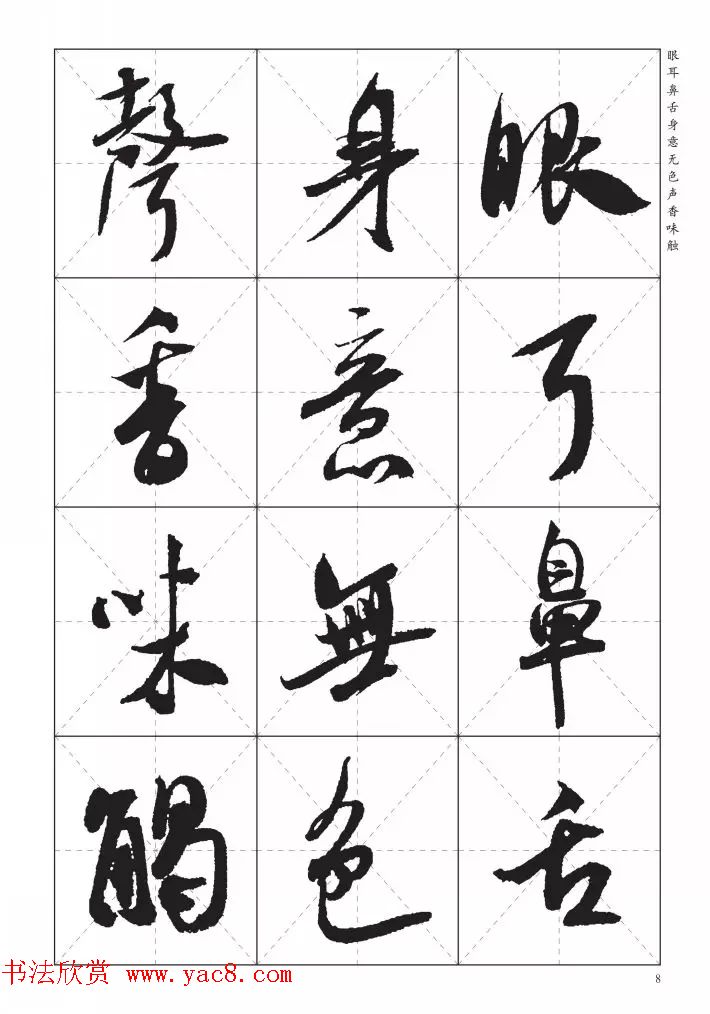 眼耳鼻舌身意无色声香味触
眼耳鼻舌
身意無色
聲香味觸
书法欣赏 www.yac8.com
8